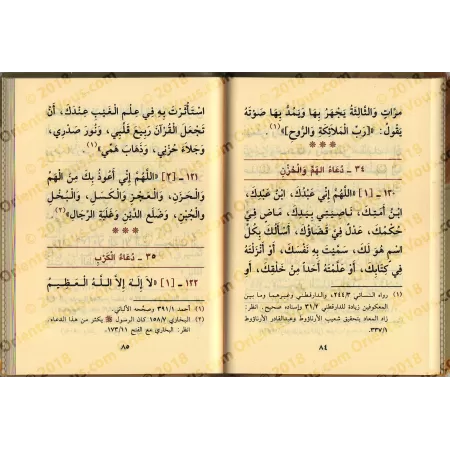 مرَّاتٍ وَالثَّالِثَةُ يَجْهَرُ بِهَا وَيَمُدُّ بِهَا صَوْتَهُ
يَقُولُ: «[رَبِّ الْمَلَائِكَةِ وَالرُّوحِ]»(١)
٣٤ ـ دُعَاءُ الهَمِّ وَالْحُزْنِ
١٢٠ ـ [١] «اللَّهُمَّ إِنِّي عَبْدُكَ، ابْنُ عَبْدِكَ،
ابْنُ أَمَتِكَ، نَاصِيَتِي بِيَدِكَ، مَاضٍ فِيَّ
حُكْمُكَ، عَدْلٌ فِيَّ قَضَاؤُكَ، أَسْأَلُكَ بِكُلِّ
اسْمٍ هُوَ لَكَ، سَمَّيْتَ بِهِ نَفْسَكَ، أَوْ أَنْزَلْتَهُ
فِي كِتَابِكَ، أَوْ عَلَّمْتَهُ أَحَداً مِنْ خَلْقِكَ، أَوِ
(١) رواه النسائي ٢٤٤/٣، والدارقطني وغيرهما وما بين
المعكوفين زيادة للدارقطني ٣١/٢ وإسناده صحيح. انظر:
زاد المعاد بتحقيق شعيب الأرناؤوط وعبدالقادر الأرناؤوط
٣٣٧/١.
٨٤
اسْتَأْثَرْتَ بِهِ فِي عِلْمِ الْغَيْبِ عِنْدَكَ، أَنْ
تَجْعَلَ الْقُرْآنَ رَبِيعَ قَلْبِي، وَنُورَ صَدْرِي،
وَجَلَاءَ حُزْنِي، وَذَهَابَ هَمِّي»(١)
١٢١ ـ [٢] «اللَّهُمَّ إِنِّي أَعُوذُ بِكَ مِنَ الْهَمِّ
وَالْحَزَنِ، وَالْعَجْزِ وَالْكَسَلِ، وَالْبُخْلِ
وَالْجُبْنِ، وَضَلَعِ الدَّيْنِ وَغَلَبَةِ الرِّجَالِ»(٢)
٣٥ ـ دُعَاءُ الْكَرْبِ
١٢٢ ـ [١] «لَا إِلَهَ إِلاَّ اللَّهُ الْعَظِيمُ
(١) أحمد ٣٩١/١ وصححه الألباني.
(٢) البخاري ١٥٨/٧ كان الرسول ﷺ يكثر من هذا الدعاء،
انظر: البخاري مع الفتح ١٧٣/١١.
٨٥
© 2018
Orient
Vous.com